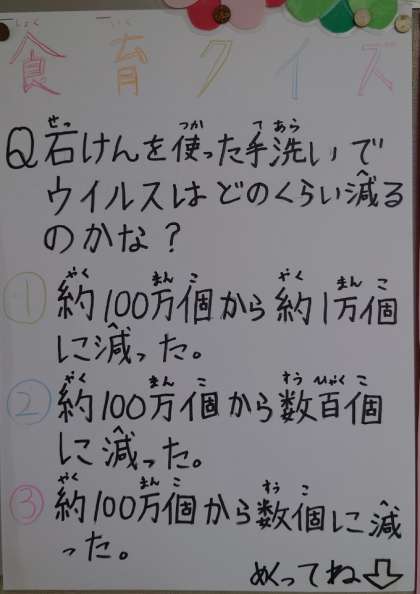 食育クイズ
Q石けんを使った手洗いで
ウイルスはどのくらい減る
のかな？
①約100万個から約1万個
に減った。
②約100万個から数百個
に減った。
③約100万個から数個に減
った。
めくってね⇩